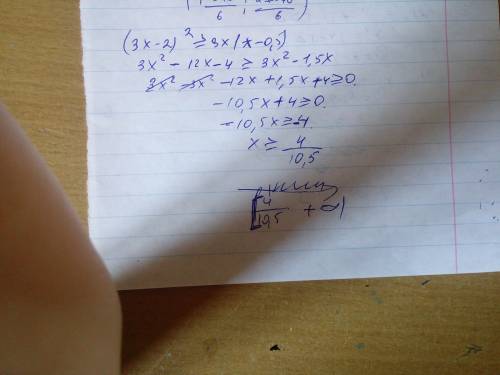 6 ; 6
(3x-2)² ≥ 3x(x-0,5)
3x² - 12x - 4 ≥ 3x² - 1,5x
3x² - 3x² - 12x + 1,5x + 4 ≥ 0.
-10,5x + 4 ≥ 0.
-10,5x ≥ -4.
x ≥ 4/10,5
[4/10,5 +∞)